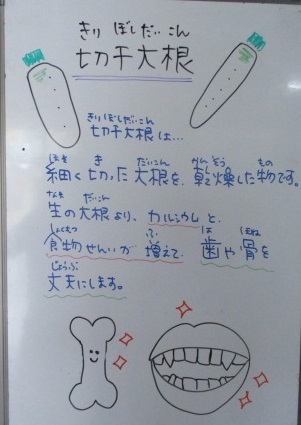 きり ぼしだい こん
切干大根
きりぼしだいこん
切干大根は…
ほそ き だいこん かんそう もの
細く切った大根を、乾燥した物です。
なま だいこん
生の大根より、カルシウムと、
しょくもつ ふ は ほね
食物せんいが 増えて、歯や骨を
じょうぶ
丈夫にします。